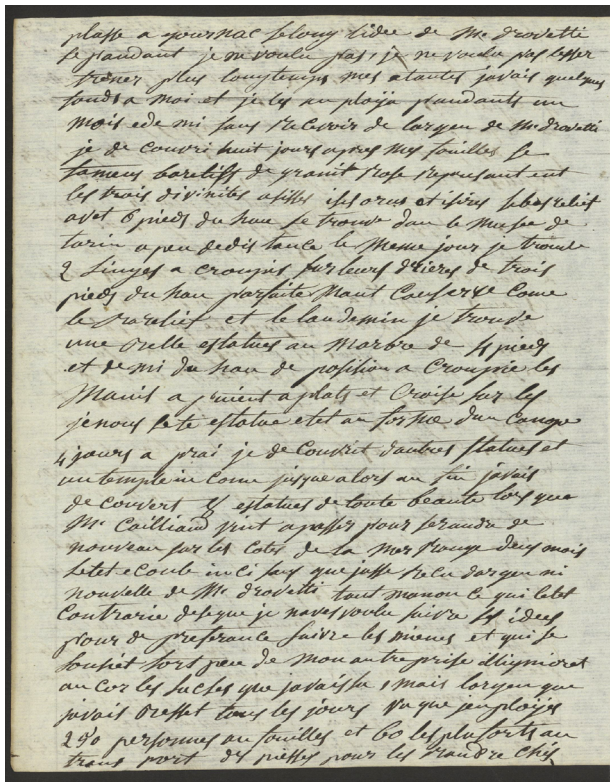 plasse a gournac selony lidee de Mr drovetti
sepandant je ne voulu pas, je ne voulu pas lesser
trener plus lougtemps mes atantes javais quelques
fonds a moi et je les anploÿa pandants un
mois ede mi sans recevoir de largen de Mr drovetti
je de couvri huit jours apres mes fouilles le
fameux bareliff de granit rose repreusant ent
les trois divinites asises isis orus et isiris sebas relief
avet 6 pieds du hau se trouve dan le musee de
turin a peu dedis tance le meme jour je trouve
2 singes a croupis sur leurs drieres de trois
pieds du hau parfaite mant conserve come
le barelief et le laudemin je trouve
une belle estatues au marbre de 4 pieds
et de mi du hau de position a croupie les
mains a puient a plats et croise sur les
jenous sete estatue etet an forme dun canope
4 jours a prai je de couvrit dautres statues et
un temple in conue jusque alors an fin javais
de couvert estatues de toute beaute lors que
Mr Cailliaud vint a passer pour se randre de
nouveau sur les cotes de la mer rouge deux mois
setet ecoule inci sans que jusse recu dargen ni
nouvelle de Mr drovetti tout manon ce qui letet
contrarie deseque je naves voulu suivre ses idees
pour de preferance suivre les mienes et qui se
sousiet fort peu de mon autre prise ilignioret
an cor les succes que javais eu, mais largen que
javais besset tous les jours vu que janploÿes
250 personnes au fouilles et 60 les plus forts au
trans port des piesses pour les randre chés